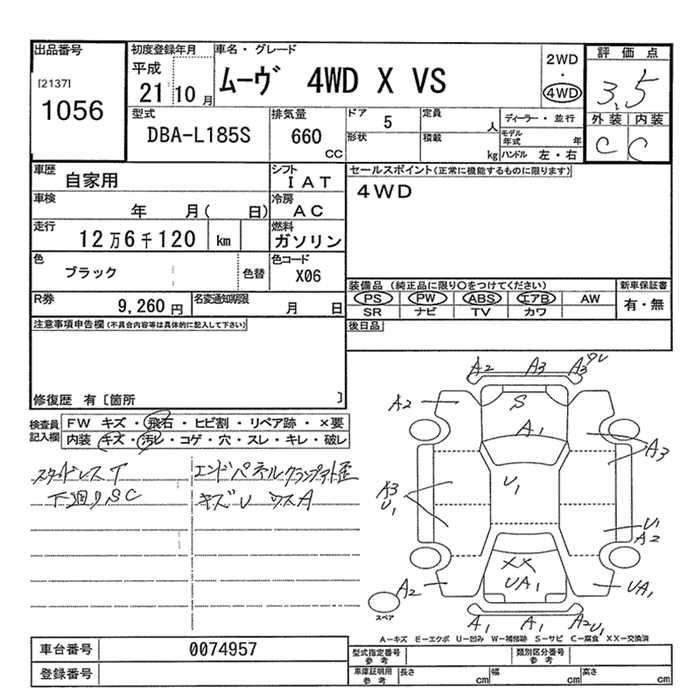 出品番号
[2137]
1056
初度登録年月
平成
21 10 月
車名・グレード
ムーヴ 4WD X VS
2WD
・
4WD
評価点
3.5
外装 内装
C C
型式
DBA-L185S
排気量
660
CC
ドア
5
形状
定員
人
積載
kg
ディーラー・並行
モデル
年式
年
ハンドル 左・右
車歴
自家用
シフト
IAT
車検
年 月( 日)
冷房
AC
走行
12万6千120 km
燃料
ガソリン
色
ブラック
色替
色コード
X06
R券
9,260 円
名変通知期限
月 日
セールスポイント(正常に機能するものに限ります)
4WD
装備品 (純正品に限り○をつけてください)
PS PW ABS エアB AW
SR ナビ TV カワ
新車保証書
有・無
後日品
注意事項申告欄(不具合内容等は具体的に記入して下さい)
修復歴 有 [箇所 ]
検査員
記入欄
FW キズ・飛石・ヒビ割・リペア跡・×要
内装 キズ・汚レ・コゲ・穴・スレ・キレ・破レ
スタッドレスT
下廻りSC
エンドパネルクランプアト歪
キズU ワスA
A2 A3 A3
A2
S
A1
A3
U1
U1
U1
A2
XX
UA1
A2
UA1
スペア
A1 A1 A2U1
A-キズ E-エクボ U-凹み W-補修跡 S-サビ C-腐食 XX-交換済
車台番号
0074957
登録番号
型式指定番号
参考
類別区分番号
参考
車庫証明用
参考
長さ
cm
幅
cm
高さ
cm